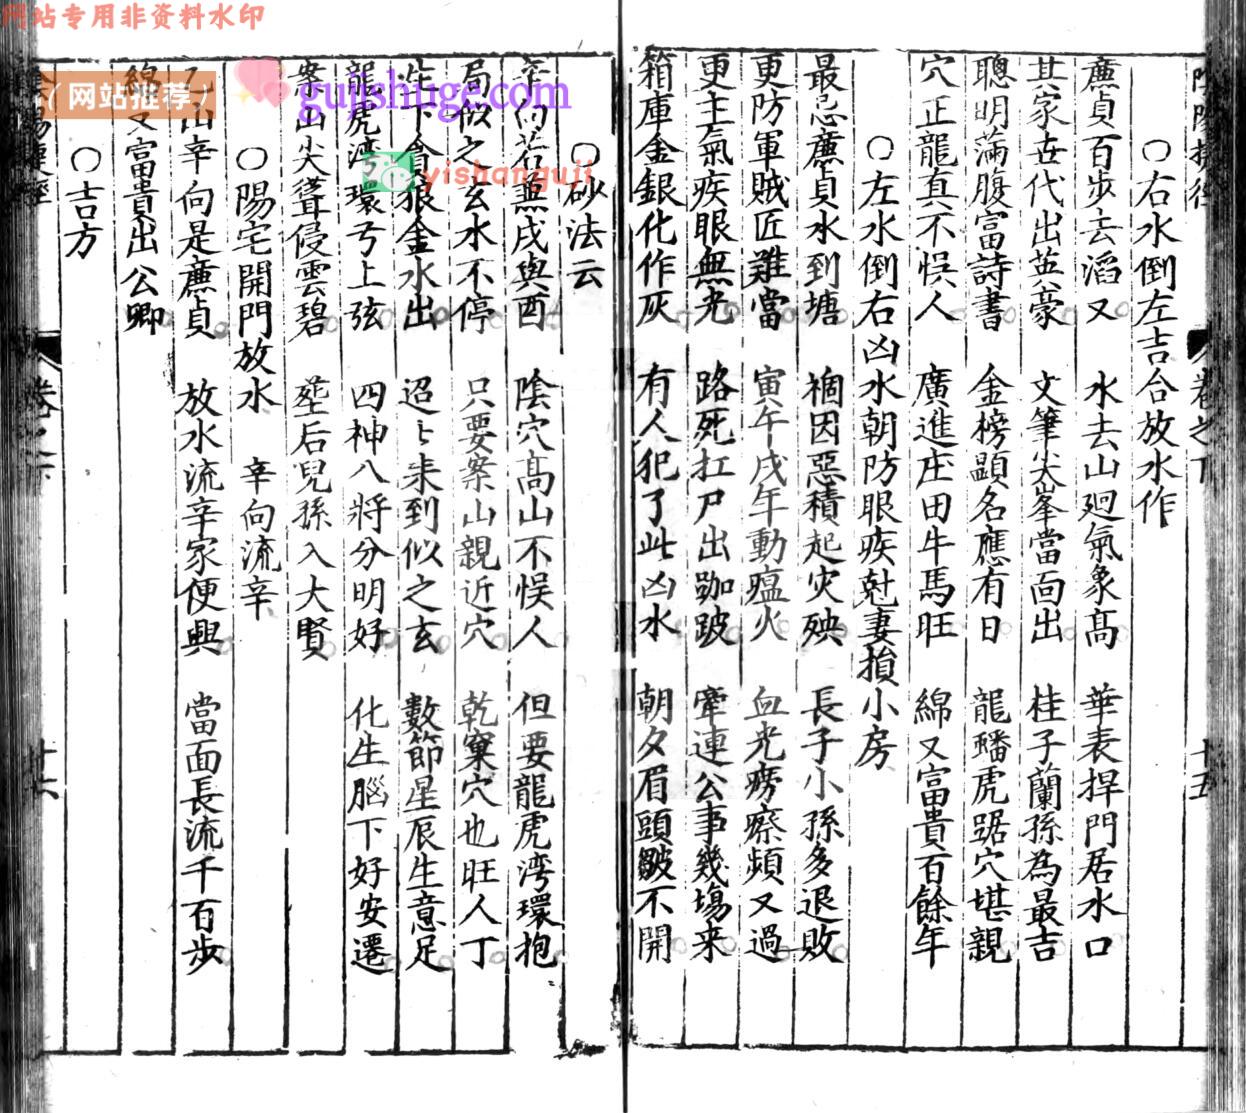 网站专用非资料水印
(网站推荐)
gujishuge.com
yishanguji
卷之下
十五
〇右水倒左吉合放水作
廉貞百步去滔又 水去山廻氣象高 華表捍門居水口
其家世代出英豪 文筆尖峯當面出 桂子蘭孫為最吉
聰明滿腹富詩書 金榜顯名應有日 龍蟠虎踞穴堪親
穴正龍真不悮人 廣進庄田牛馬旺 綿又富貴百餘年
〇左水倒右凶水朝防眼疾尅妻損小房
最忌廉貞水到塘 禍因惡積起灾殃 長子小孫多退敗
更防軍賊匠難當 寅午戌年動瘟火 血光癆瘵頻又過
更主氣疾眼無光 路死扛尸出跏跛 牽連公事幾塲来
箱庫金銀化作灰 有人犯了此凶水 朝夕眉頭皺不開
〇砂法云
辛向若無戌與酉 陰穴高山不悮人 但要龍虎湾環抱
局似之玄水不停 只要案山親近穴 乾窠穴也旺人丁
生下貪狼金水出 迢〻来到似之玄 數節星辰生意足
龍虎湾環弓上弦 四神八將分明好 化生腦下好安遷
案山尖聳侵雲碧 塟后兒孫入大賢
〇陽宅開門放水 辛向流辛
山辛向是廉貞 放水流辛家便興 當面長流千百步
綿又富貴出公卿
〇吉方
卷之下
十六